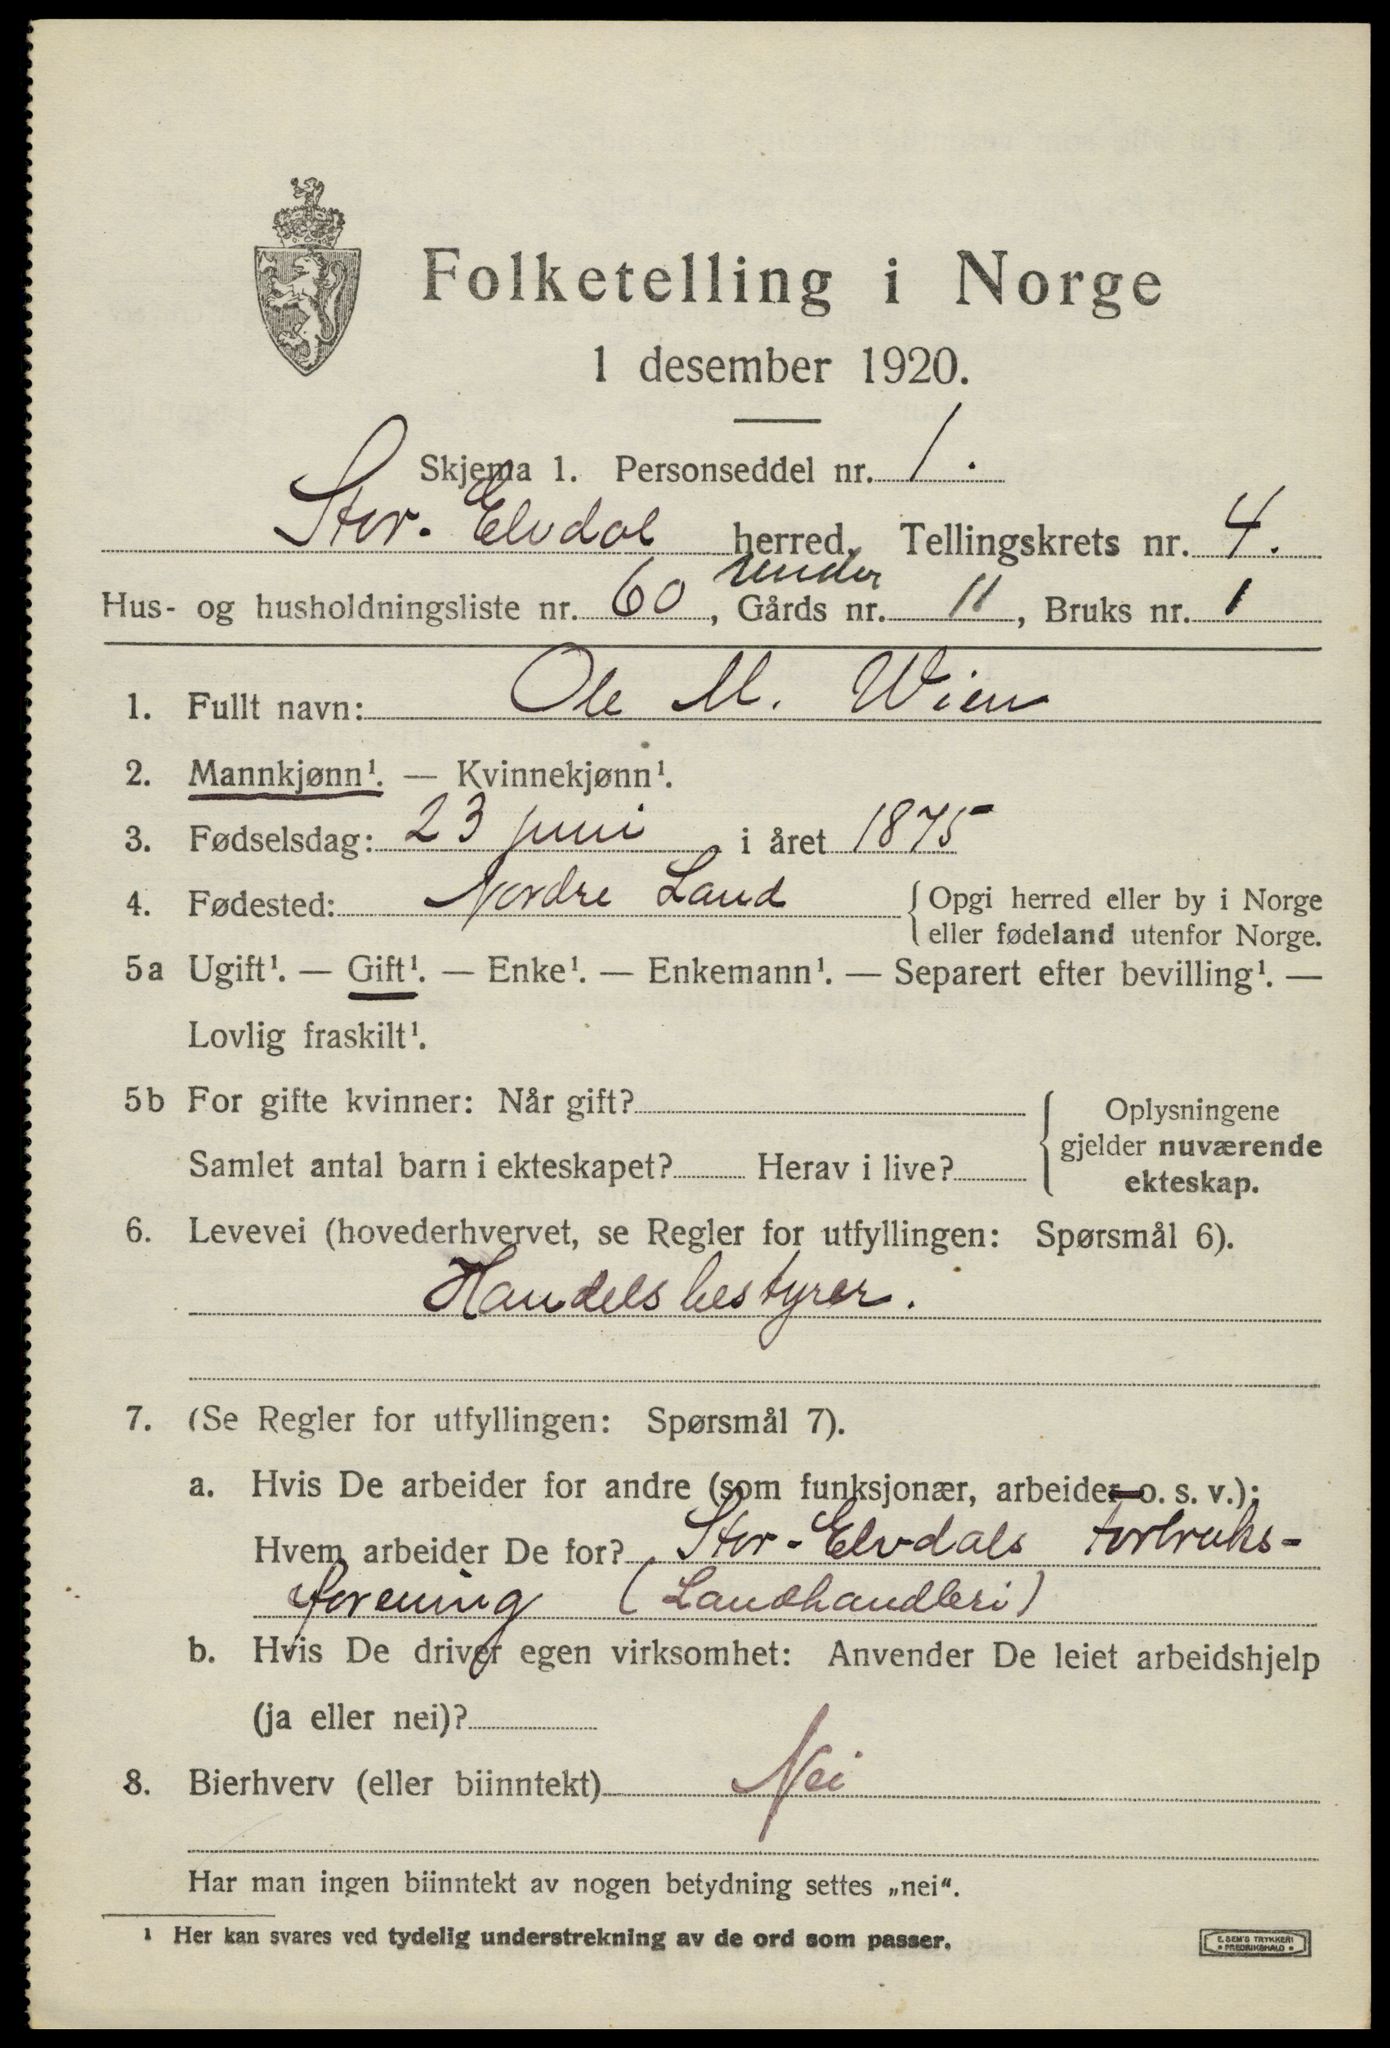 Folketelling i Norge
1 desember 1920.
Skjema 1. Personseddel nr. 1.
Stor-Elvdal herred. Tellingskrets nr. 4.
under
Hus- og husholdningsliste nr. 60, Gårds nr. 11, Bruks nr. 1
1. Fullt navn: Ole M. Wien
2. Mannkjønn¹. — Kvinnekjønn¹.
3. Fødselsdag: 23 juni i året 1875
4. Fødested: Nordre Land {Opgi herred eller by i Norge
eller fødeland utenfor Norge.
5a Ugift¹. — Gift¹. — Enke¹. — Enkemann¹. — Separert efter bevilling¹. —
Lovlig fraskilt¹.
5b For gifte kvinner: Når gift?
Samlet antal barn i ekteskapet? Herav i live?
Oplysningene
gjelder nuværende
ekteskap.
6. Levevei (hovederhvervet, se Regler for utfyllingen: Spørsmål 6).
Handelsbestyrer.
7. (Se Regler for utfyllingen: Spørsmål 7).
a. Hvis De arbeider for andre (som funksjonær, arbeider o. s. v.);
Hvem arbeider De for? Stor-Elvdals Forbruks-
forening (Landhandleri)
b. Hvis De driver egen virksomhet: Anvender De leiet arbeidshjelp
(ja eller nei)?
8. Bierhverv (eller biinntekt) Nei
Har man ingen biinntekt av nogen betydning settes „nei“.
¹ Her kan svares ved tydelig understrekning av de ord som passer.
E. SEM'S TRYKKERI
• FREDRIKSHALD •